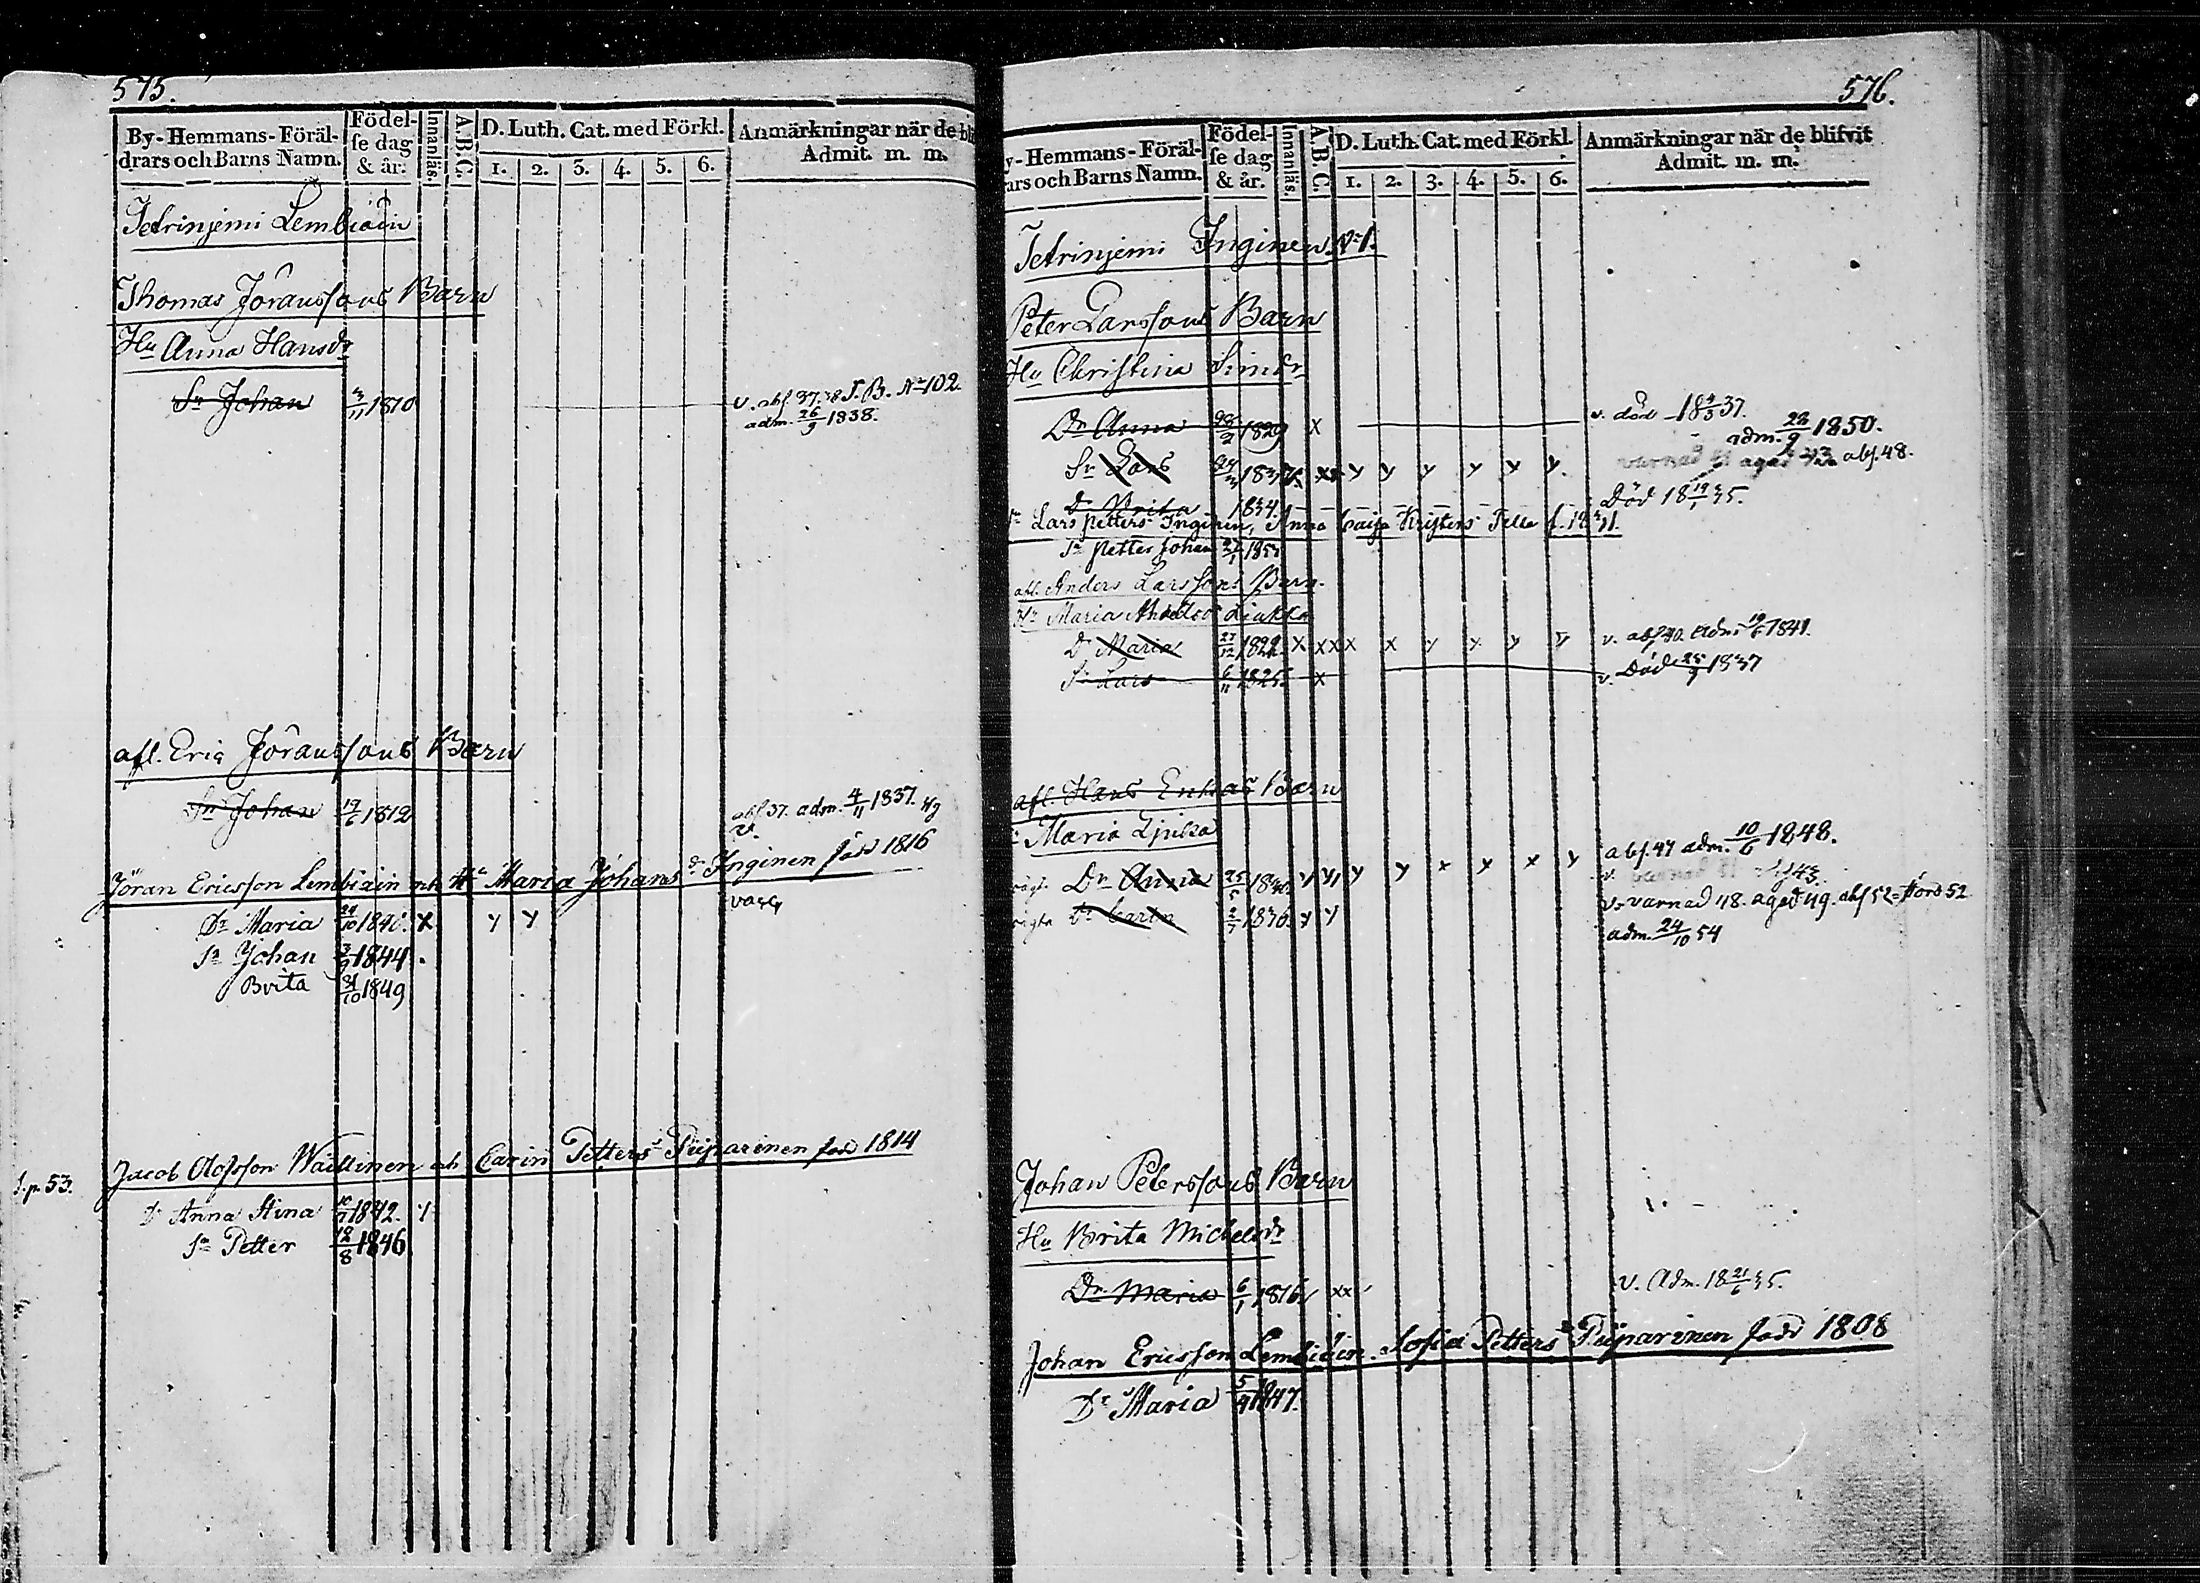 575.
By-Hemmans-Föräl-
drars och Barns Namn.
Födel-
se dag
& år.
Innanläs.
A.B.C.
D. Luth. Cat. med Förkl.
1. 2. 3. 4. 5. 6.
Anmärkningar när de bli
Admit. m. m.
Tetrinjemi Lembiäin
Thomas Jöranssons Barn
Hu Anna Hansdr
Sn Johan 3/11 1810 v. abs. 37.38 S.B. No 102.
adm. 26/9 1838.
afl. Eric Jöranssons Barn
Sn Johan 19/6 1812 abs. 37. adm. 4/11 1837.
v.
Jöran Ericsson Lembiäin och Hu Maria Johansdr Inginen född 1816
Dr Maria 1840. x y y
Sn Johan 3/9 1844
Brita 31/10 1849
Jacob Olofsson Wäittinen och Carin Petters Piiparinen född 1814
s.p. 53.
Dr Anna Stina 10/7 1842. y
Sn Petter 12/8 1846
576.
y-Hemmans-Föräl-
ars och Barns Namn.
Födel-
se dag
& år.
Innanläs.
A.B.C.
D. Luth. Cat. med Förkl.
1. 2. 3. 4. 5. 6.
Anmärkningar när de blifvit
Admit. m. m.
Tetrinjemi Inginen No 1.
Peter Larssons Barn
Hu Christina Simdr
Dr Anna 1829 x v. död 18 37.
adm. 22/9 1850.
Sn Lars y y y y y y abs. 48.
Dr Brita 1834. Död 18 19/1 35.
Lars Petters Inginen, Anna Caisa Kristers Tella
Sn Petter Johan
afl. Anders Larssons Barn.
Hu Maria Liukko
Dr Maria 27/12 1822. x xxx x y y y y v. abs. 40. Adm. 1841.
Sn Lars 6/11 1825. x v. Död 25/9 1837
afl. Hans Enkas Barn
Maria
Dr Anna 25/5 y y y y x y x y abs. 47 adm. 10/6 1848.
v.
Dr Carin 1836. y y v. varnad 48. agad 49. abs 52
adm. 24/10 54
Johan Peterssons Barn
Hu Brita Michelsdr
Dr Maria 6/1 1816. xx v. Adm. 18 21/6 35.
Johan Ericsson Lembiäin. Sofia Petters Piiparinen född 1808
Dr Maria 5/9 1847.